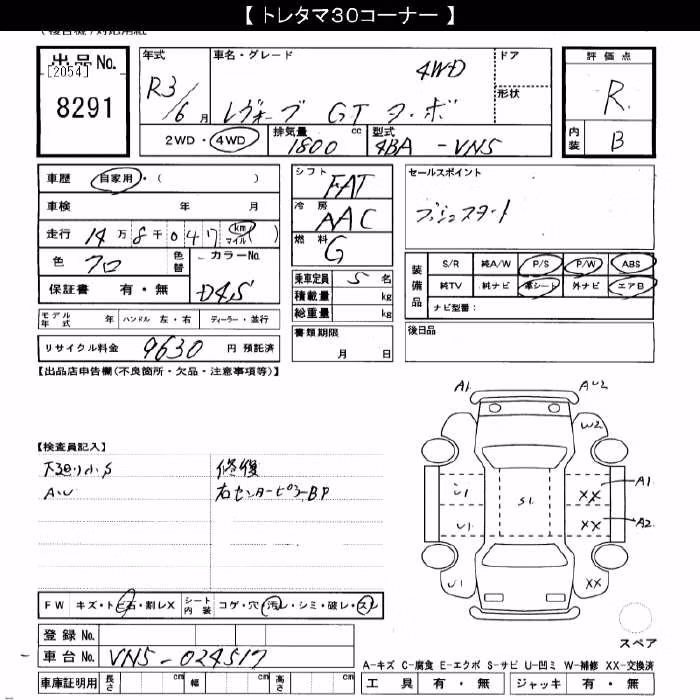 【トレタマ30コーナー】
出品No.
[2054]
8291
年式
R3/6月
車名・グレード
4WD
レヴォーグ GT ターボ
ドア
形状
2WD・4WD
排気量 1800 cc
型式 4BA-VN5
評価点
R
内装 B
車歴 自家用・( )
車検 年 月
走行 14万8千047 km マイル
色 クロ
色替
カラーNo.
D4S
保証書 有・無
シフト FAT
冷房 AAC
燃料 G
乗車定員 5名
積載量 kg
総重量 kg
セールスポイント
プッシュスタート
装備品
S/R 純A/W P/S P/W ABS
純TV 純ナビ 革シート 外ナビ エアB
ナビ型番:
モデル年式 年 ハンドル 左・右 ディーラー・並行
リサイクル料金 9630 円 預託済
書類期限
月 日
後日品
【出品店申告欄(不良箇所・欠品・注意事項等)】
A1 AU2
W2
【検査員記入】
下廻り小S
修復
AU
右センターピラーBP
U1 S1 XX A1
U1 XX A2
U1 XX
FW キズ・トビ石・割レX シート内装 コゲ・穴・汚レ・シミ・破レ・スレ
登録No.
車台No. VN5-024517
スペア
A-キズ C-腐食 E-エクボ S-サビ U-凹ミ W-補修 XX-交換済
車庫証明用 長さ cm 幅 cm 高さ cm
工具 有・無 ジャッキ 有・無